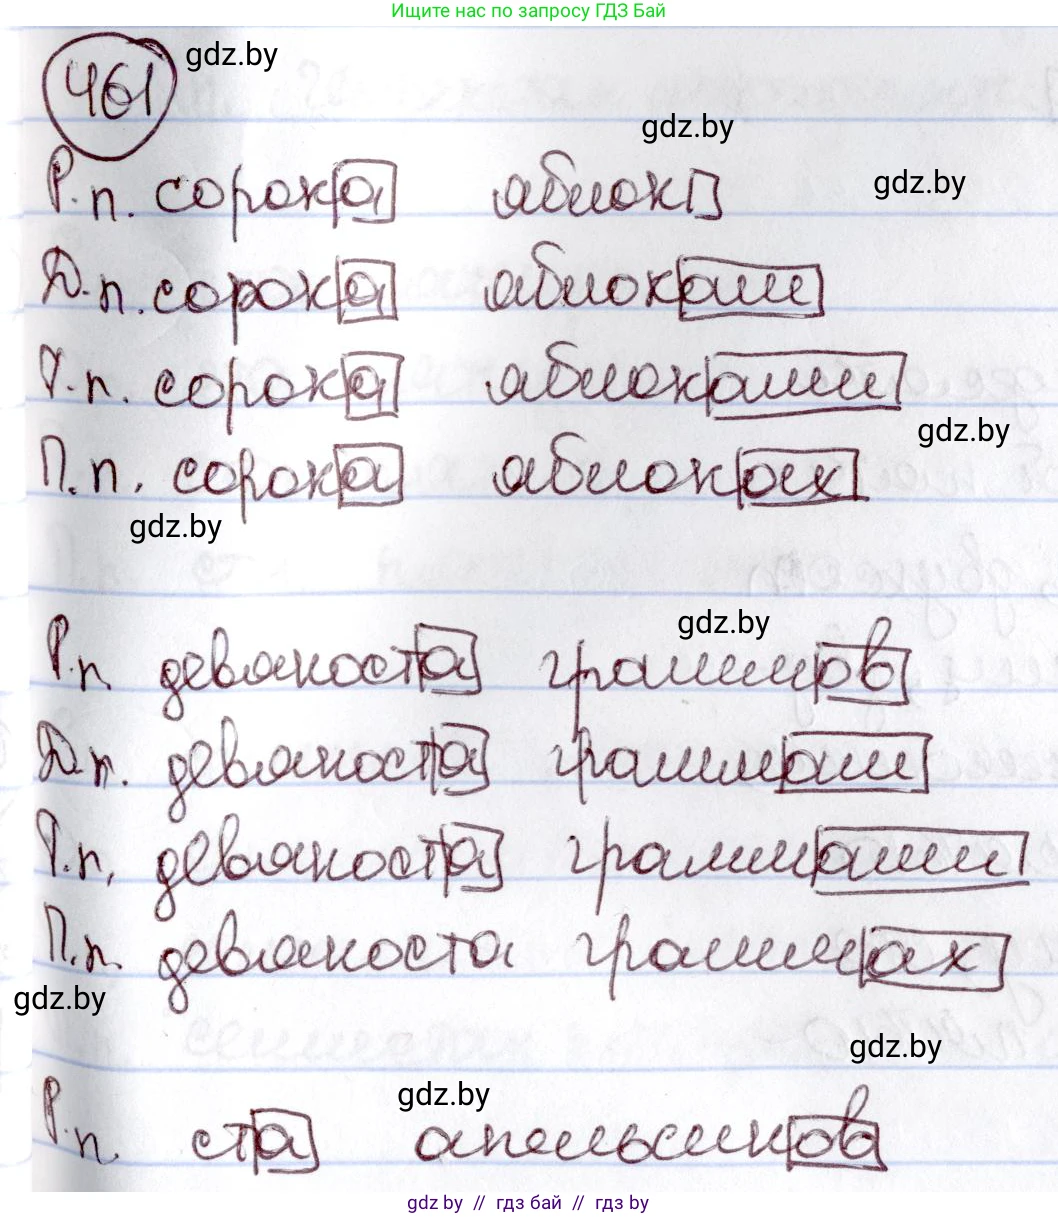 Ищите нас по запросу ГДЗ Бай
461 gdz.by
gdz.by
Р.п. сорока яблок gdz.by
Д.п. сорока яблокам
Т.п. сорока яблоками
gdz.by
П.п. сорока яблоках
gdz.by
gdz.by
Р.п девяноста граммов
Д.п. девяноста граммам
Т.п. девяноста граммами
П.п. девяноста граммах
gdz.by
gdz.by
gdz.by
Р.п ста апельсинов
gdz.by // гдз бай // гдз by